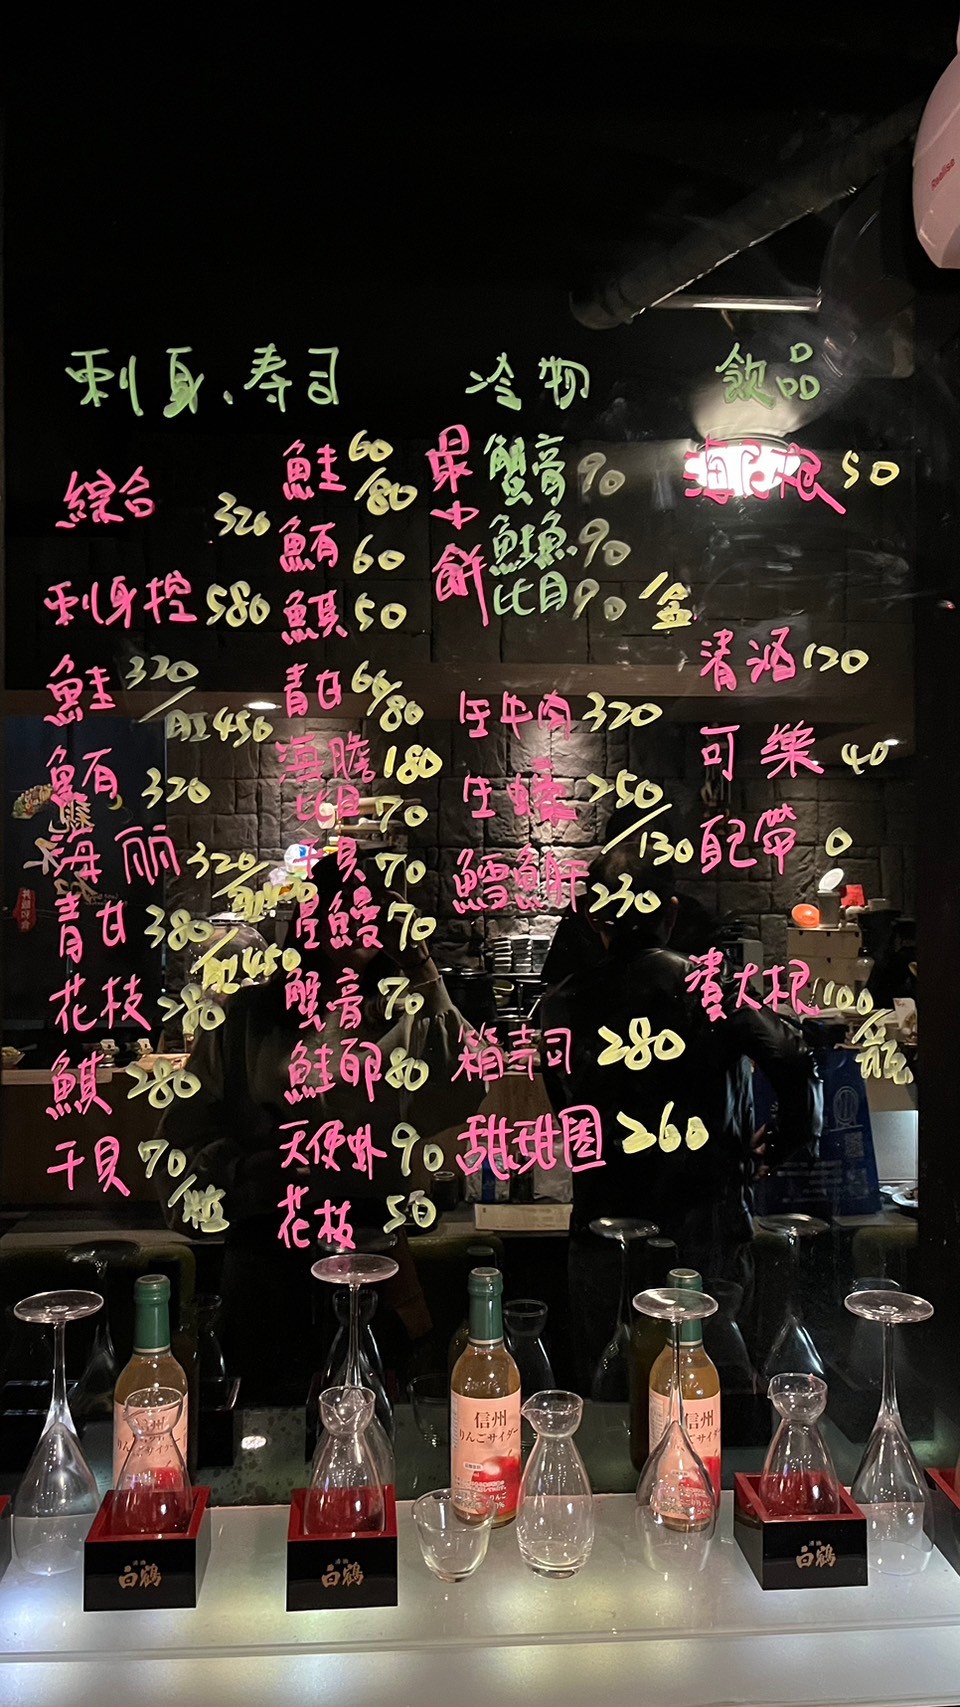 刺身、壽司
綜合 320
刺身控 580
鮭 320/肚450
鮪 320
海丽 320/
青甘 380/肚450
花枝 280
鯕 280
干貝 70/粒
鮭 60/80
鮪 60
鯕 50
青甘 60/80
海膽 180
比目 70
干貝 70
星鰻 70
蟹膏 70
鮭卵 80
天使蝦 90
花枝 50
冷物
最中餅
蟹膏 90
鮭魚 90
比目 90/盒
生牛肉 320
生蠔 250/130
鱈魚肝 230
箱壽司 280
甜甜圈 260
飲品
海尼根 50
清酒 120
可樂 40
配帶 0
賣大根 100/
信州
りんごサイダー
信州
りんごサイダー
信州
りんごサイダー
白鶴
白鶴
白鶴